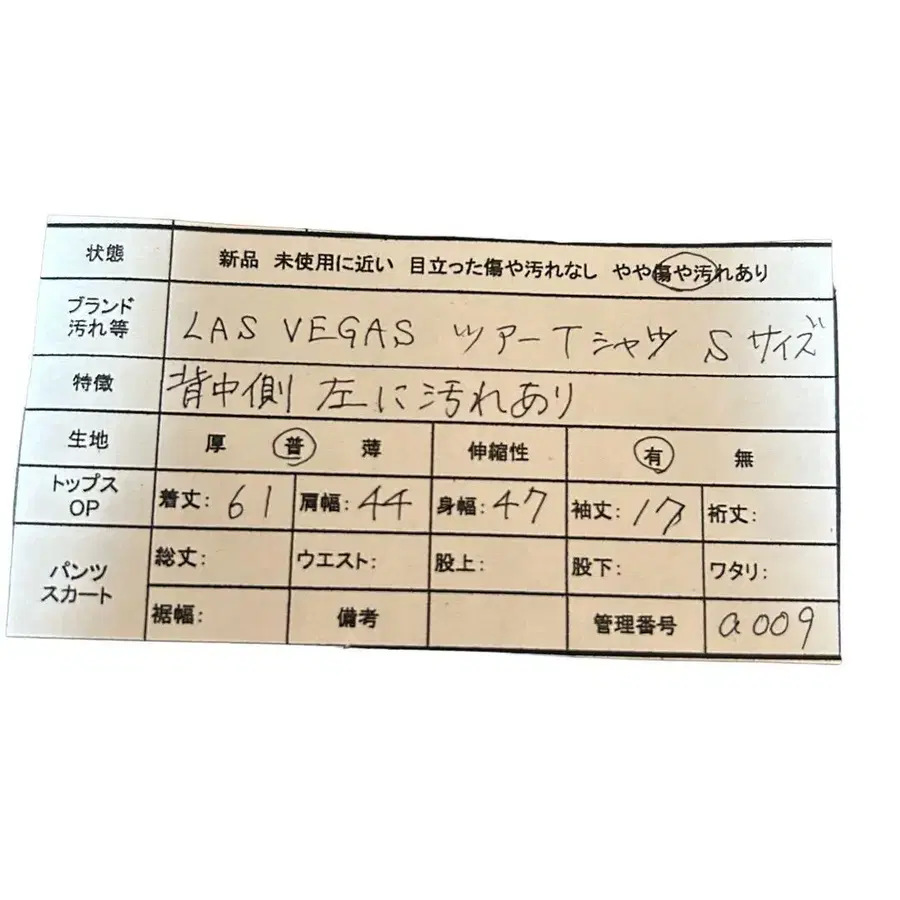 状態 新品 未使用に近い 目立った傷や汚れなし やや傷や汚れあり
ブランド
汚れ等 LAS VEGAS ツアーTシャツ Sサイズ
特徴 背中側 左に汚れあり
生地 厚 普 薄 伸縮性 有 無
トップス
OP 着丈: 61 肩幅: 44 身幅: 47 袖丈: 17 裄丈:
パンツ
スカート 総丈: ウエスト: 股上: 股下: ワタリ:
裾幅: 備考 管理番号 a009